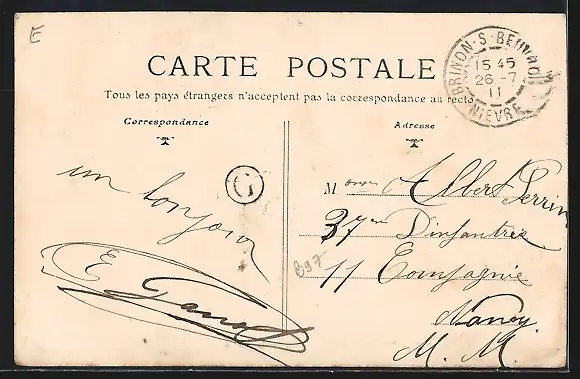 E
CARTE POSTALE
Tous les pays étrangers n'acceptent pas la correspondance au recto
BRINON-S-BEUVRON
15 45
26-7
11
NIÈVRE
Correspondance
un bonjour
E
G
Adresse
Monsieur Albert Perrin
37em D'infantrie
11 Compagnie
Nancy.
M. M.
B97